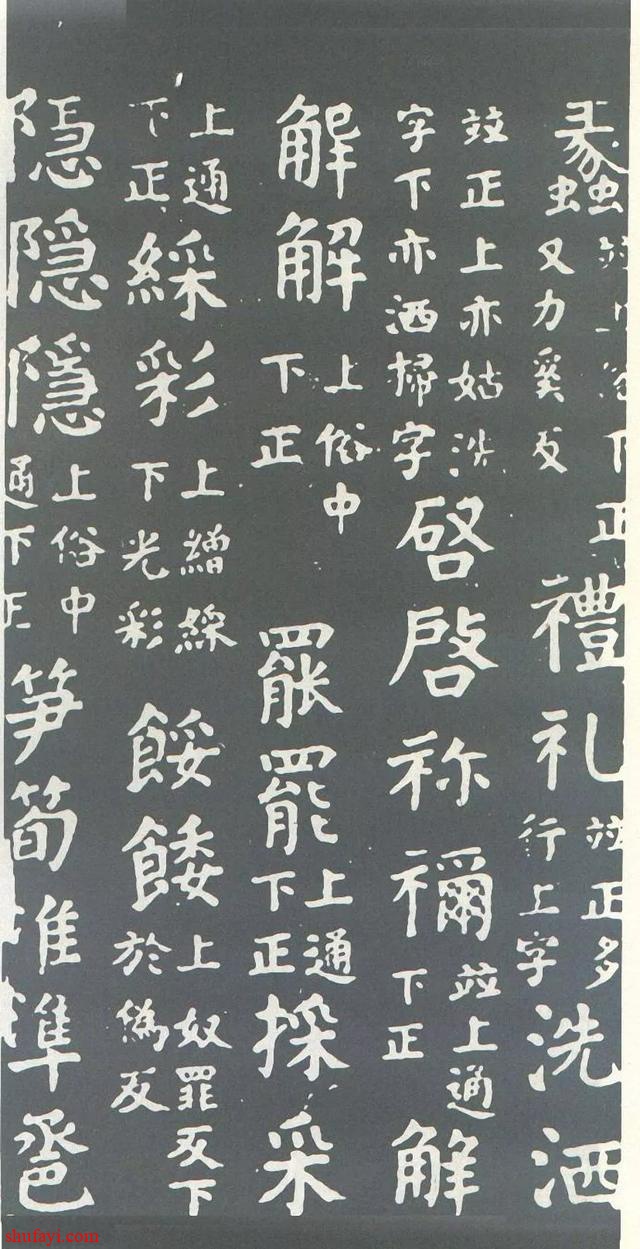 蠡 竝上俗下正 又力奚反 禮礼 竝正多行上字 洗洒
竝正上亦姑洗字下亦洒掃字 啓啟祢禰 竝上通下正 解
解解 上俗中下正 罷罷 上通下正 採采
上通下正 綵彩 上繒綵下光彩 餒餧 上奴罪反下於偽反
隐隠隱 上俗中通下正 笋筍准準卺
shufayi.com